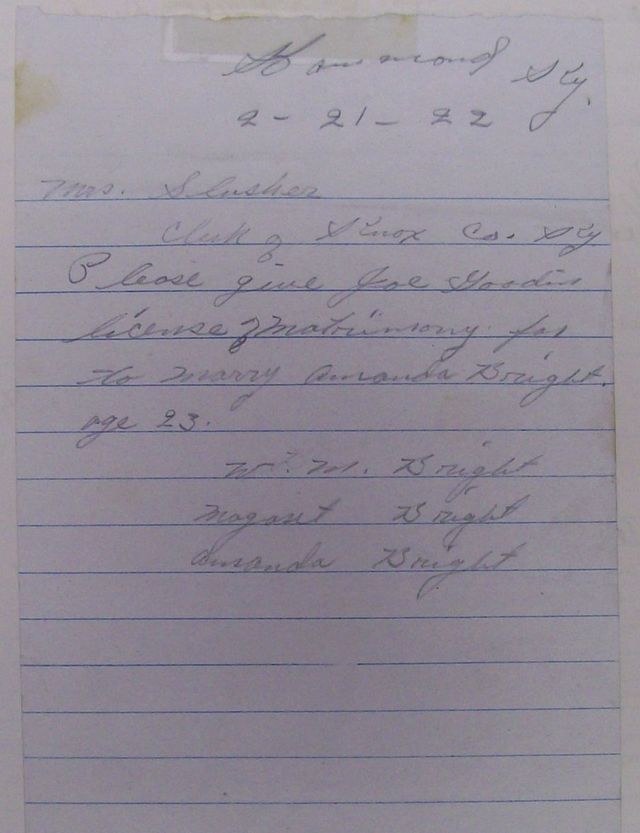 Hammond Ky.
2-21-22
Mrs. Slusher
Clerk of Knox Co. Ky
Please give Joe Goodin
license of Matrimony for
to marry Amanda Bright.
age 23.
Wm. M. Bright
Magaret Bright
Amanda Bright